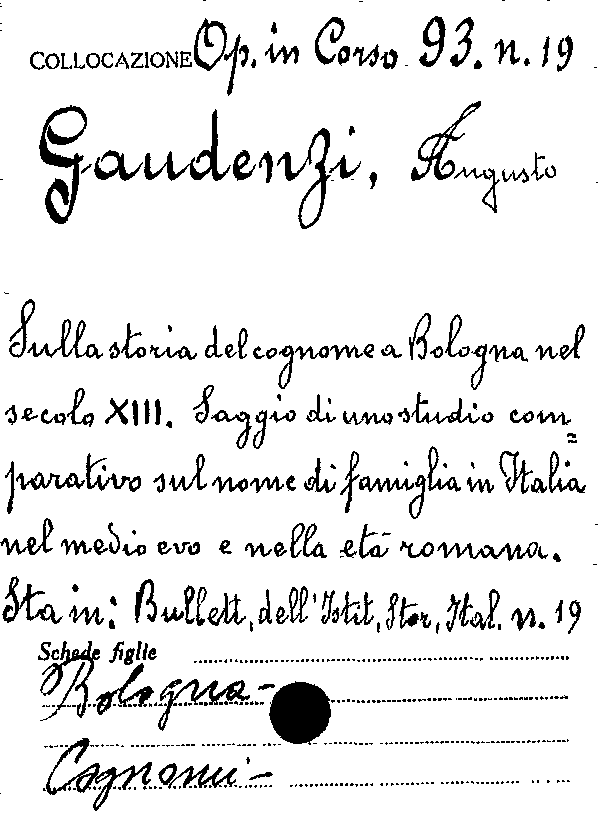 COLLOCAZIONE Op. in Corso 93. n. 19
Gaudenzi, Augusto
Sulla storia del cognome a Bologna nel
secolo XIII. Saggio di uno studio com=
parativo sul nome di famiglia in Italia
nel medio evo e nella età romana.
Sta in: Bullett. dell'Istit. Stor. Ital. n. 19
Schede figlie
Bologna -
Cognomi -